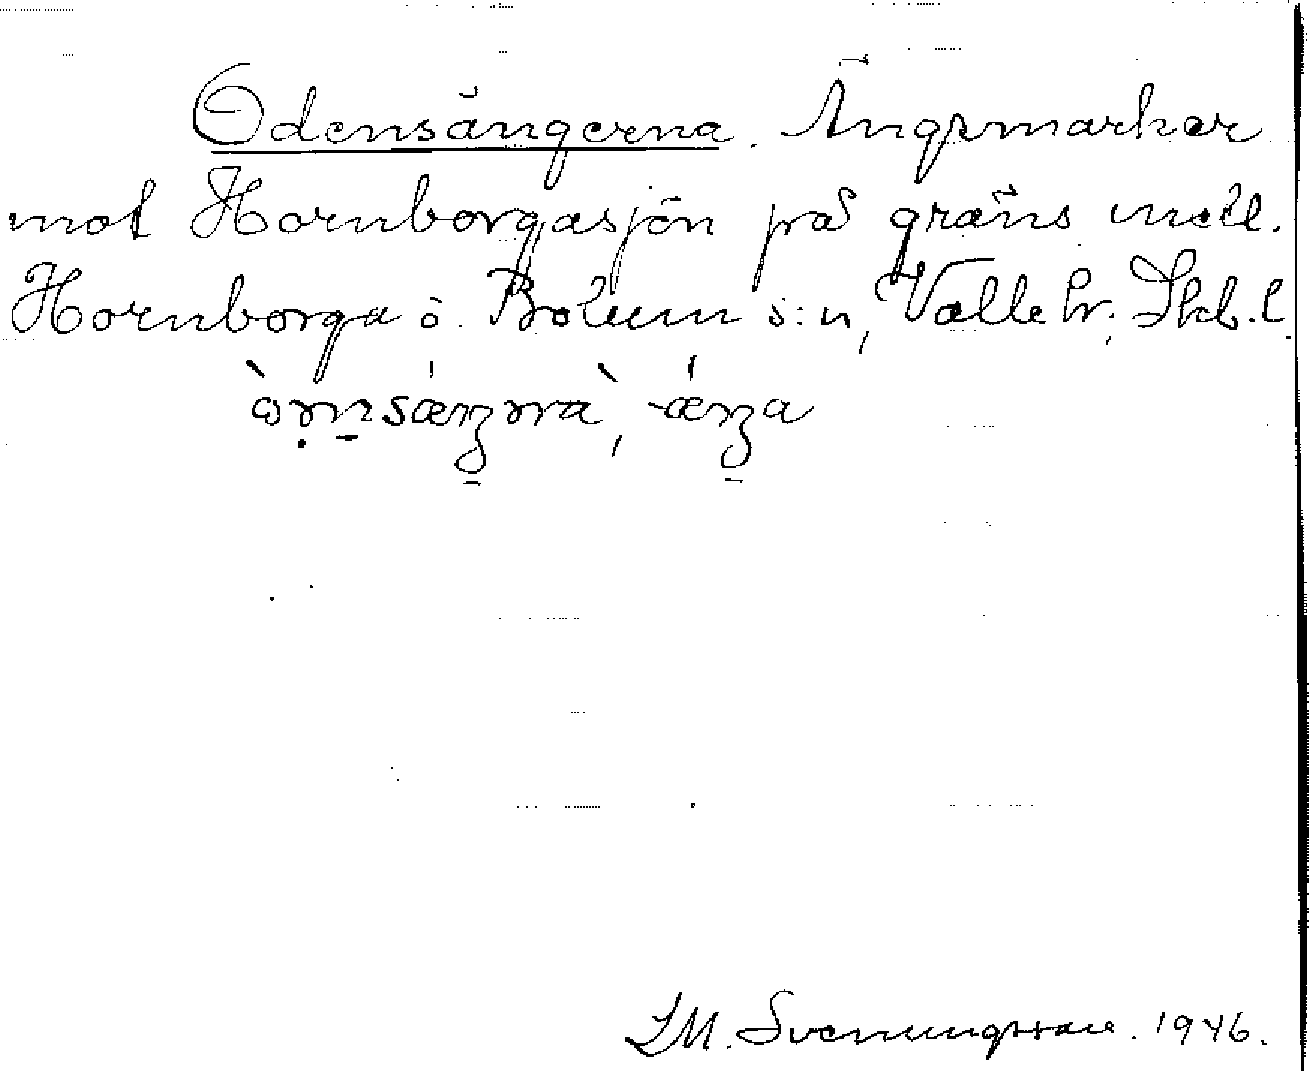 Odensängerna. Ängsmarker
mot Hornborgasjön på gräns mell.
Hornborga o. Bolum s:n, Valle hr. Skb.l.
L.M. Svenungsson. 1946.